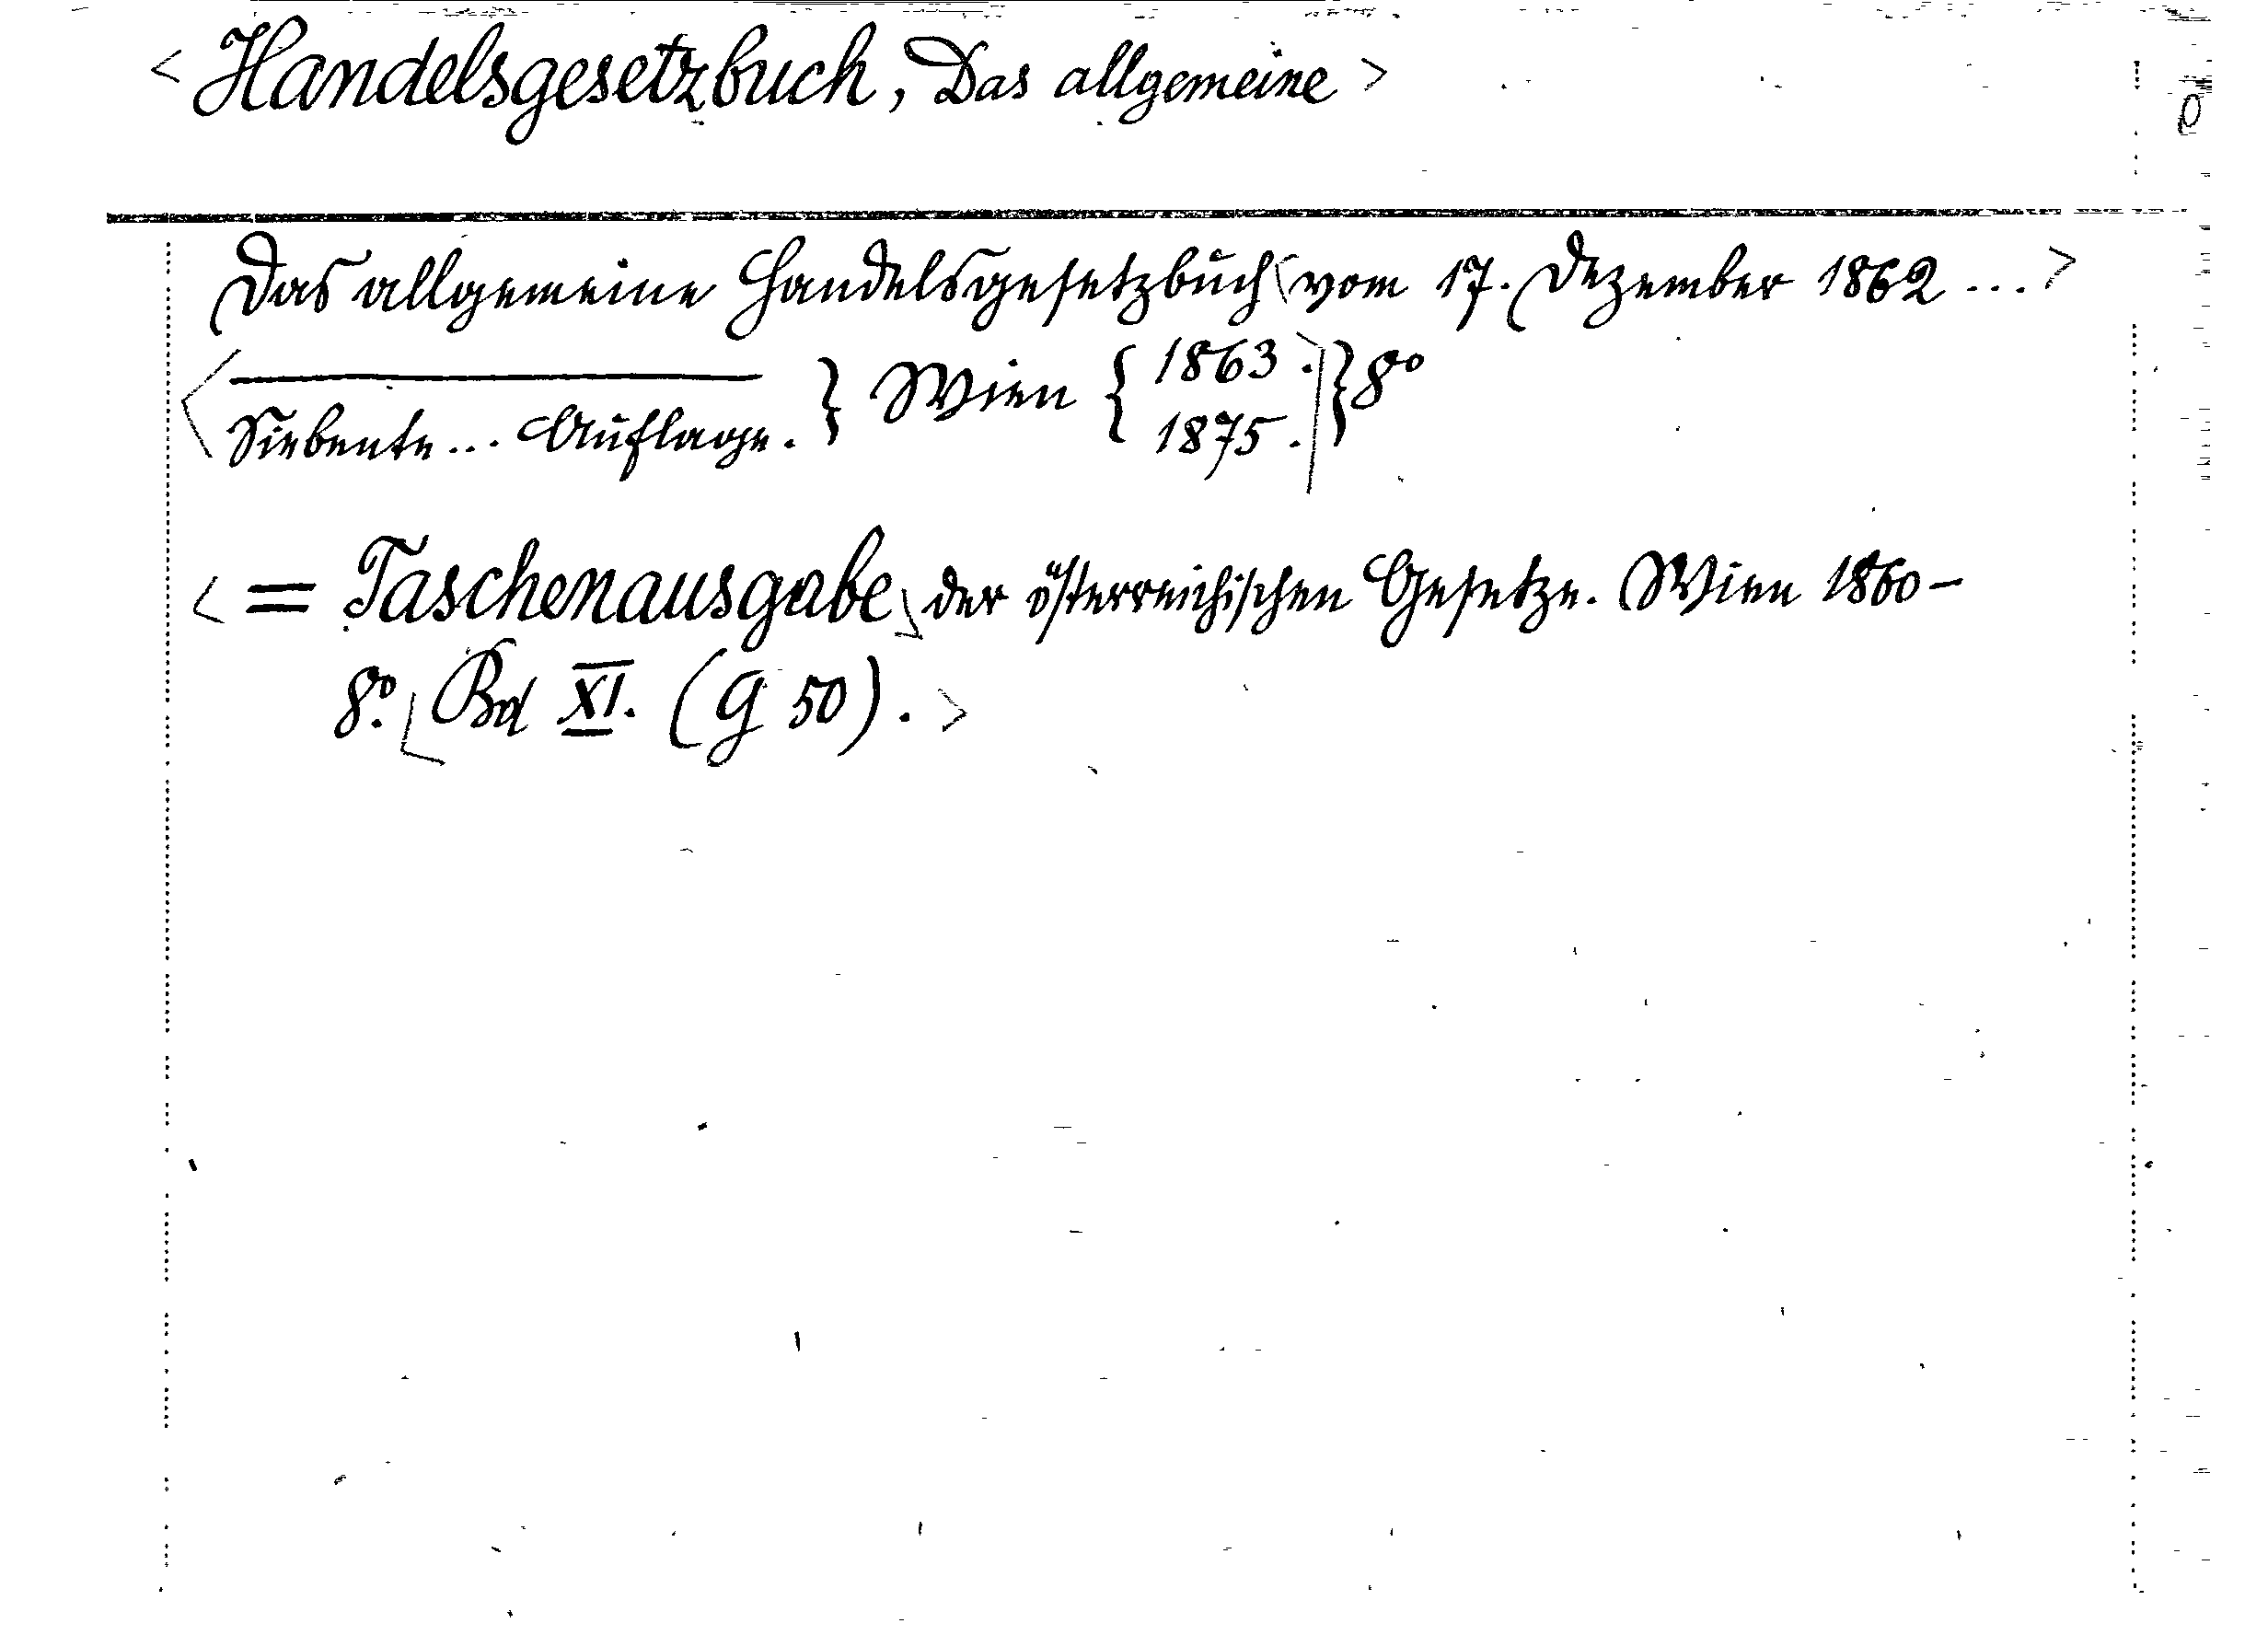 < Handelsgesetzbuch, Das allgemeine >
Das allgemeine Handelsgesetzbuch < vom 17. Dezember 1862 ... >
< ———— } Wien { 1863. } 8°
Siebente ... Auflage. 1875.
< = Taschenausgabe > der österreichischen Gesetze. Wien 1860–
8°. < Bd XI. (G 50). >